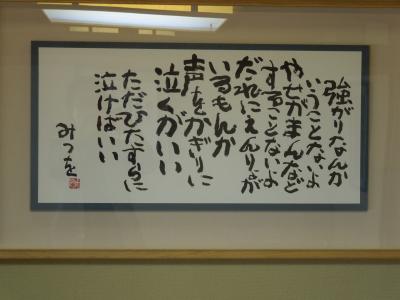 強がりなんか
いうことないよ
やせがまんなど
することないよ
だれにえんりょが
いるもんか
声をかぎりに
泣くがいい
ただひたすらに
泣けばいい
みつを